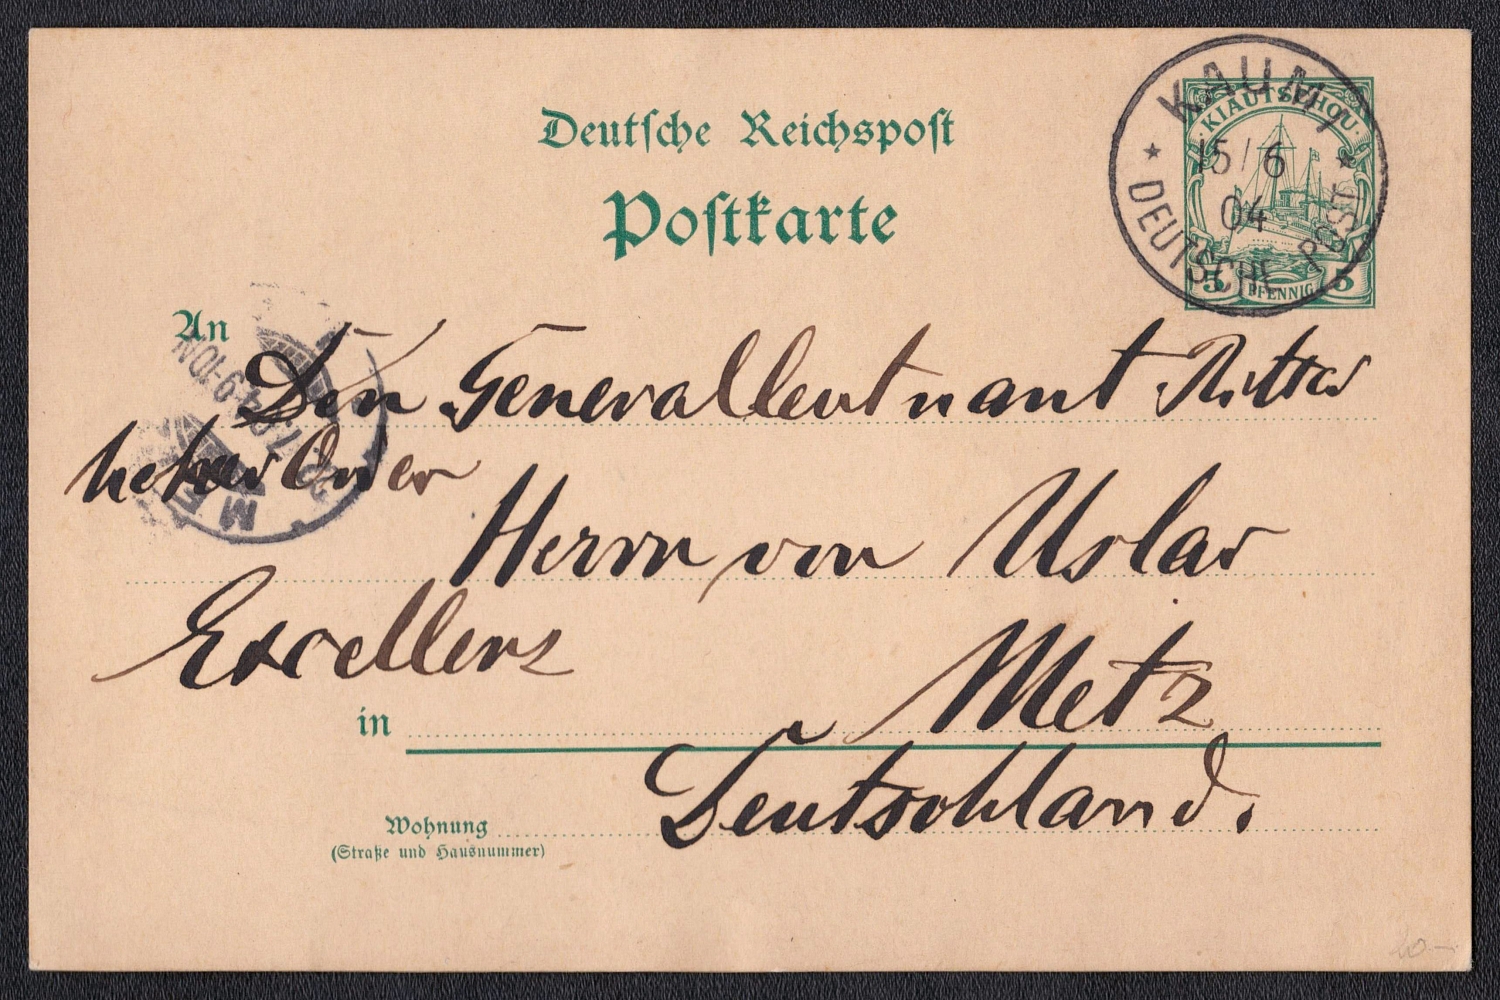 Deutsche Reichspost
Postkarte
KAUMI
15/6
04
DEUTSCHE POST
KIAUTSCHOU
5 PFENNIG 5
An
Den Generalleutnant Ritter
hoher Orden
Herrn von Uslar
Excellenz
in Metz
Deutschland.
Wohnung
(Straße und Hausnummer)
20-